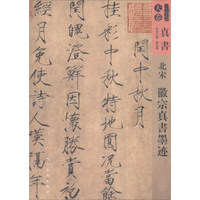 真書
北宋
徽宗真書墨迹
閏中秋月
桂彩中秋特地圓況當餘
閏魄澄鮮因懷勝賞初
經月免使詩人嘆隔年